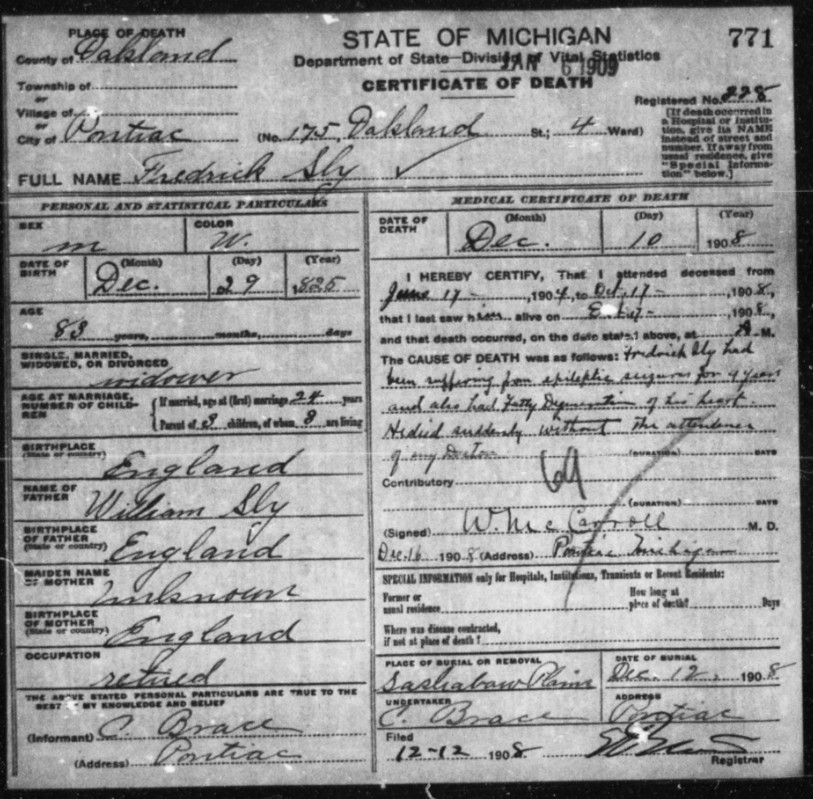 PLACE OF DEATH
STATE OF MICHIGAN
771
County of Oakland
Department of State—Division of Vital Statistics
JAN 6 1909
Township of
CERTIFICATE OF DEATH
or
Village of
Registered No. 228
or
City of Pontiac
(No. 175 Oakland St.; 4 Ward)
[If death occurred in a Hospital or Institution, give its NAME instead of street and number. If away from usual residence, give "Special Information" below.]
FULL NAME Fredrick Sly
PERSONAL AND STATISTICAL PARTICULARS
SEX
m
COLOR
W.
DATE OF BIRTH
(Month) (Day) (Year)
Dec. 29 1825
AGE
83 years, months, days
SINGLE, MARRIED, WIDOWED, OR DIVORCED
widower
AGE AT MARRIAGE, NUMBER OF CHILDREN
If married, age at (first) marriage 24 years
Parent of 3 children, of whom 3 are living
BIRTHPLACE
(State or country)
England
NAME OF FATHER
William Sly
BIRTHPLACE OF FATHER
(State or country)
England
MAIDEN NAME OF MOTHER
Unknown
BIRTHPLACE OF MOTHER
(State or country)
England
OCCUPATION
retired
THE ABOVE STATED PERSONAL PARTICULARS ARE TRUE TO THE
BEST OF MY KNOWLEDGE AND BELIEF
(Informant) C. Brace
(Address) Pontiac
MEDICAL CERTIFICATE OF DEATH
DATE OF DEATH
(Month) (Day) (Year)
Dec. 10 1908
I HEREBY CERTIFY, That I attended deceased from
June 17 - , 1904, to Oct. 17 - , 1908,
that I last saw him alive on , 1908,
and that death occurred, on the date stated above, at M.
The CAUSE OF DEATH was as follows: Fredrick Sly had
been suffering from epileptic seizures for 4 years
and also had Fatty Degeneration of his heart.
He died suddenly without the attendance
of any Doctor
(DURATION) DAYS
Contributory
69
(DURATION) DAYS
(Signed) W. McCarroll M. D.
Dec. 16 1908 (Address) Pontiac Michigan
SPECIAL INFORMATION only for Hospitals, Institutions, Transients or Recent Residents:
Former or usual residence
How long at place of death? Days
Where was disease contracted,
if not at place of death?
PLACE OF BURIAL OR REMOVAL
Sashabaw Plains
DATE OF BURIAL
Dec. 12, 1908
UNDERTAKER
C. Brace
ADDRESS
Pontiac
Filed
12-12 1908
Registrar